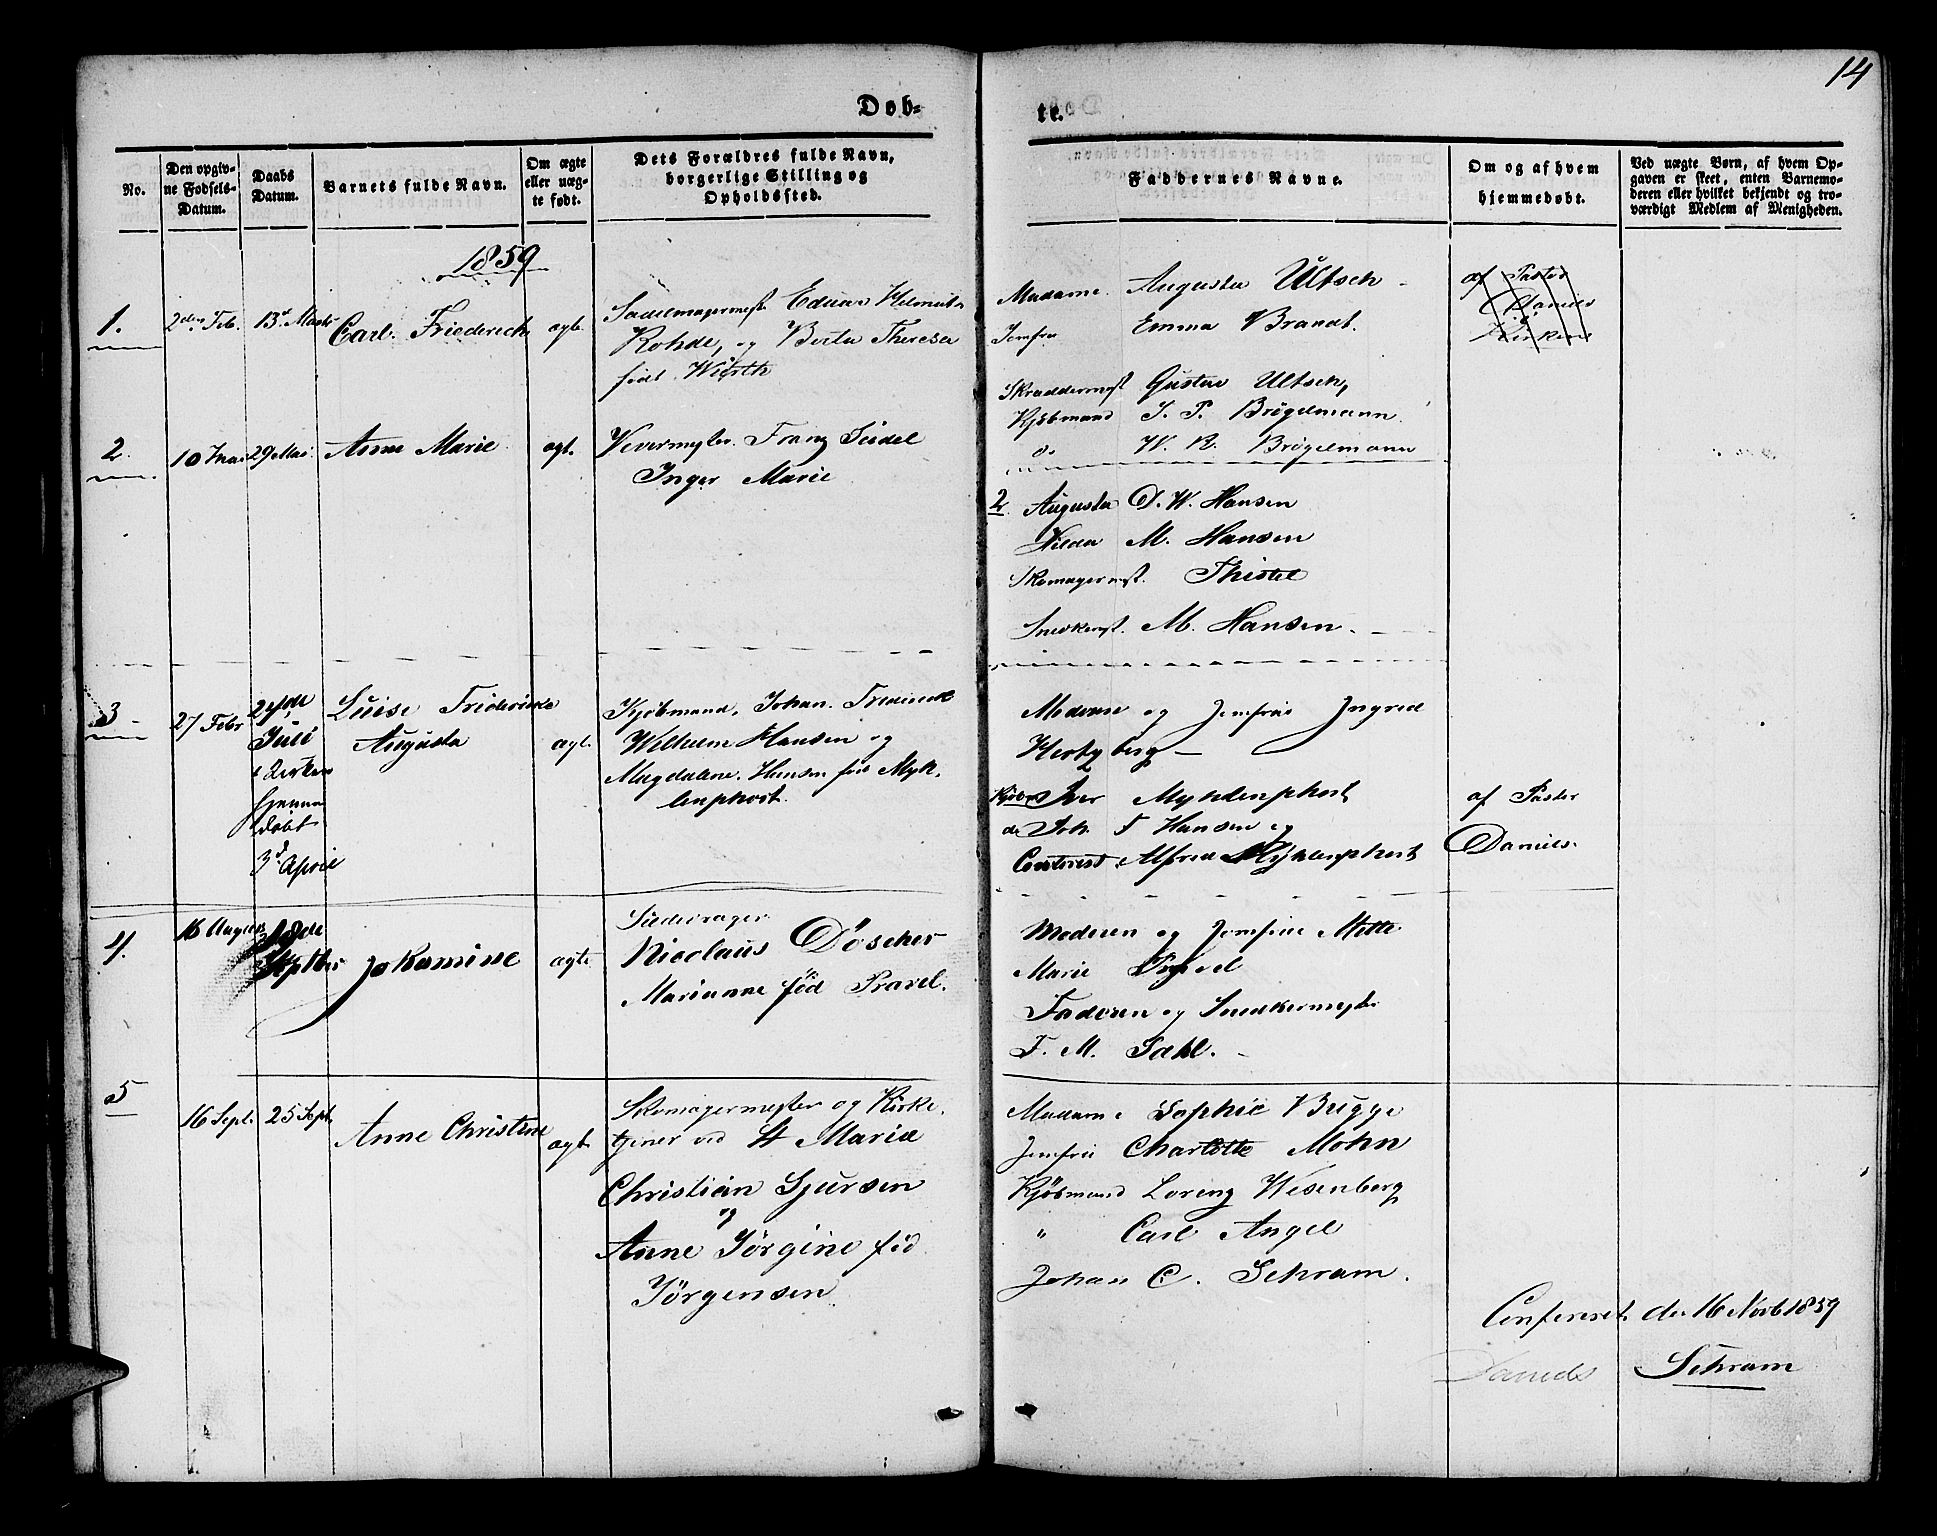 14
Døb-
te.
No.
Den opgiv-
ne Fødsels-
Datum.
Daabs
Datum.
Barnets fulde Navn.
Om ægte
eller uæg-
te født.
Dets Forældres fulde Navn,
borgerlige Stilling og
Opholdssted.
Faddernes Navne.
Om og af hvem
hjemmedøbt.
Ved uægte Børn, af hvem Op-
gaven er skeet, enten Barnemo-
deren eller hvilket bekjendt og tro-
værdigt Medlem af Menigheden.
1859
1.
2den Feb.
13d Marts
Carl Friederich
ægt.
Sadelmagermest
Rohde, og Berta Theresa
født
Madame Augusta Ultsch
Jomfru Emma Brandt.
Skræddermest Gustav Ultsch,
Kjøbmand J. P. Brøgelmann
do W. R. Brøgelmann
af Pastor
Daniels
i
Kirken
2.
10
29 Mai
Anne Marie
ægt.
Vevermester Franz Seidel
Inger Marie
2 Augusta D. W. Hansen
Hilda M. Hansen
Skomagermst. Thistel
Snedkermst. M. Hansen.
3
27 Febr
Juli
i Kirken
hjemme
døbt
3d April
Luise Friderikke
Augusta
ægt.
Kjøbmand, Johan Frederick
Wilhelm Hansen og
Magdalene Hansen fød Myk-
lenphost.
Moderen og Jomfrue Ingred
Hertzberg
Iver Myklenphost
do Joh. F Hansen og
Alfred Myklenphost
af Pastor
Daniels.
4.
16 August
18de
Septbr
Johamine
ægte
Nicolaus Døscher
Marianne fød Pravel.
Moderen og Jomfrue Mette
Marie
Faderen og Snedkermester
F. M. Dahl.
5
16 Sept.
25 Sept.
Anne Christine
ægt.
Skomagermester og Kirke-
tjener ved St Mariæ
Christian Sjursen
og
Anne Jørgine fød
Jørgensen
Madame Sophie Brügge
Jomfrue Charlotte Mohn
Kjøbmand Lorenz Wesenberg
" Carl Angel
Johan C. Schram.
Confereret den 16 Novb 1859
Daniels Schram